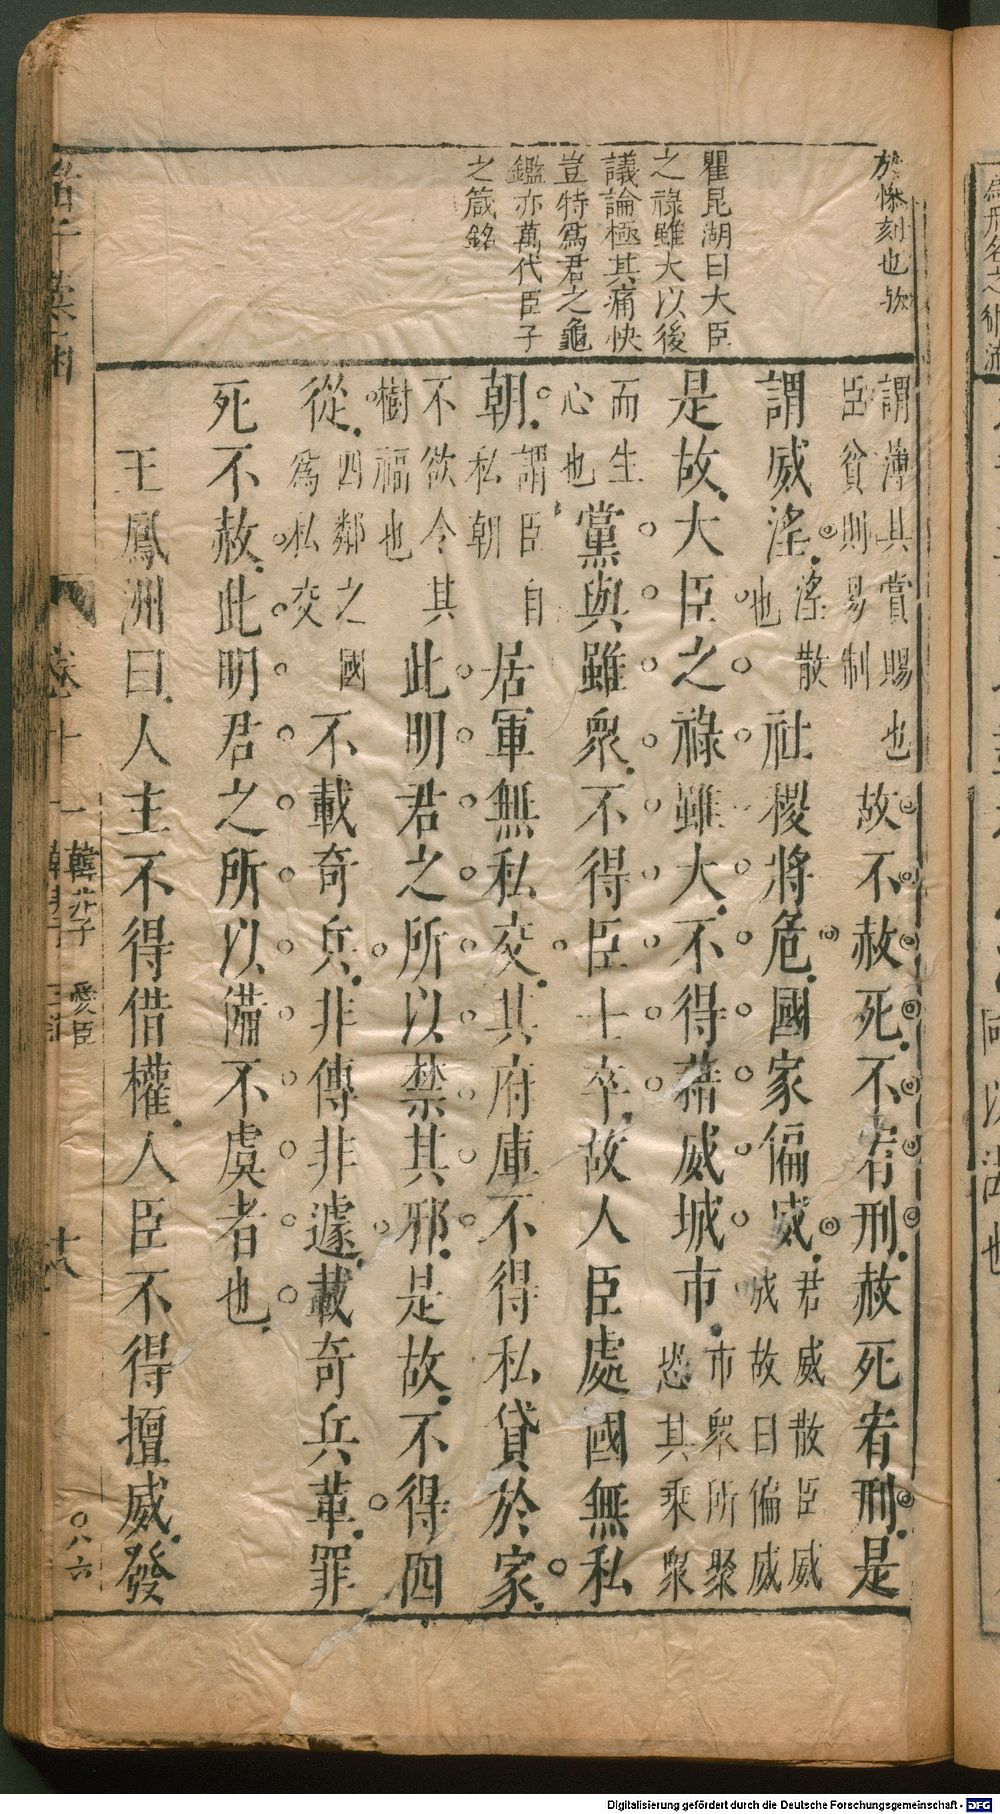 於慘刻也歟
瞿昆湖曰大臣
之祿雖大以後
議論極其痛快
豈特爲君之龜
鑑亦萬代臣子
之箴銘
謂薄其賞賜也
臣貧則易制
故不赦死不宥刑赦死宥刑是
謂威淫
淫散
也
社稷將危國家偏威
君威散臣威
成故曰偏威
是故大臣之祿雖大不得藉威城市
市衆所聚
恐其乘衆
而生
心也
黨與雖衆不得臣士卒故人臣處國無私
朝
謂臣自
私朝
居軍無私交其府庫不得私貸於家
不欲令其
樹福也
此明君之所以禁其邪是故不得四
從
四鄰之國
爲私交
不載奇兵非傳非遽載奇兵革罪
死不赦此明君之所以備不虞者也
王鳳洲曰人主不得借權人臣不得擅威發
卷十一
韓非子 愛臣
十八
〇八六
Digitalisierung gefördert durch die Deutsche Forschungsgemeinschaft - DFG